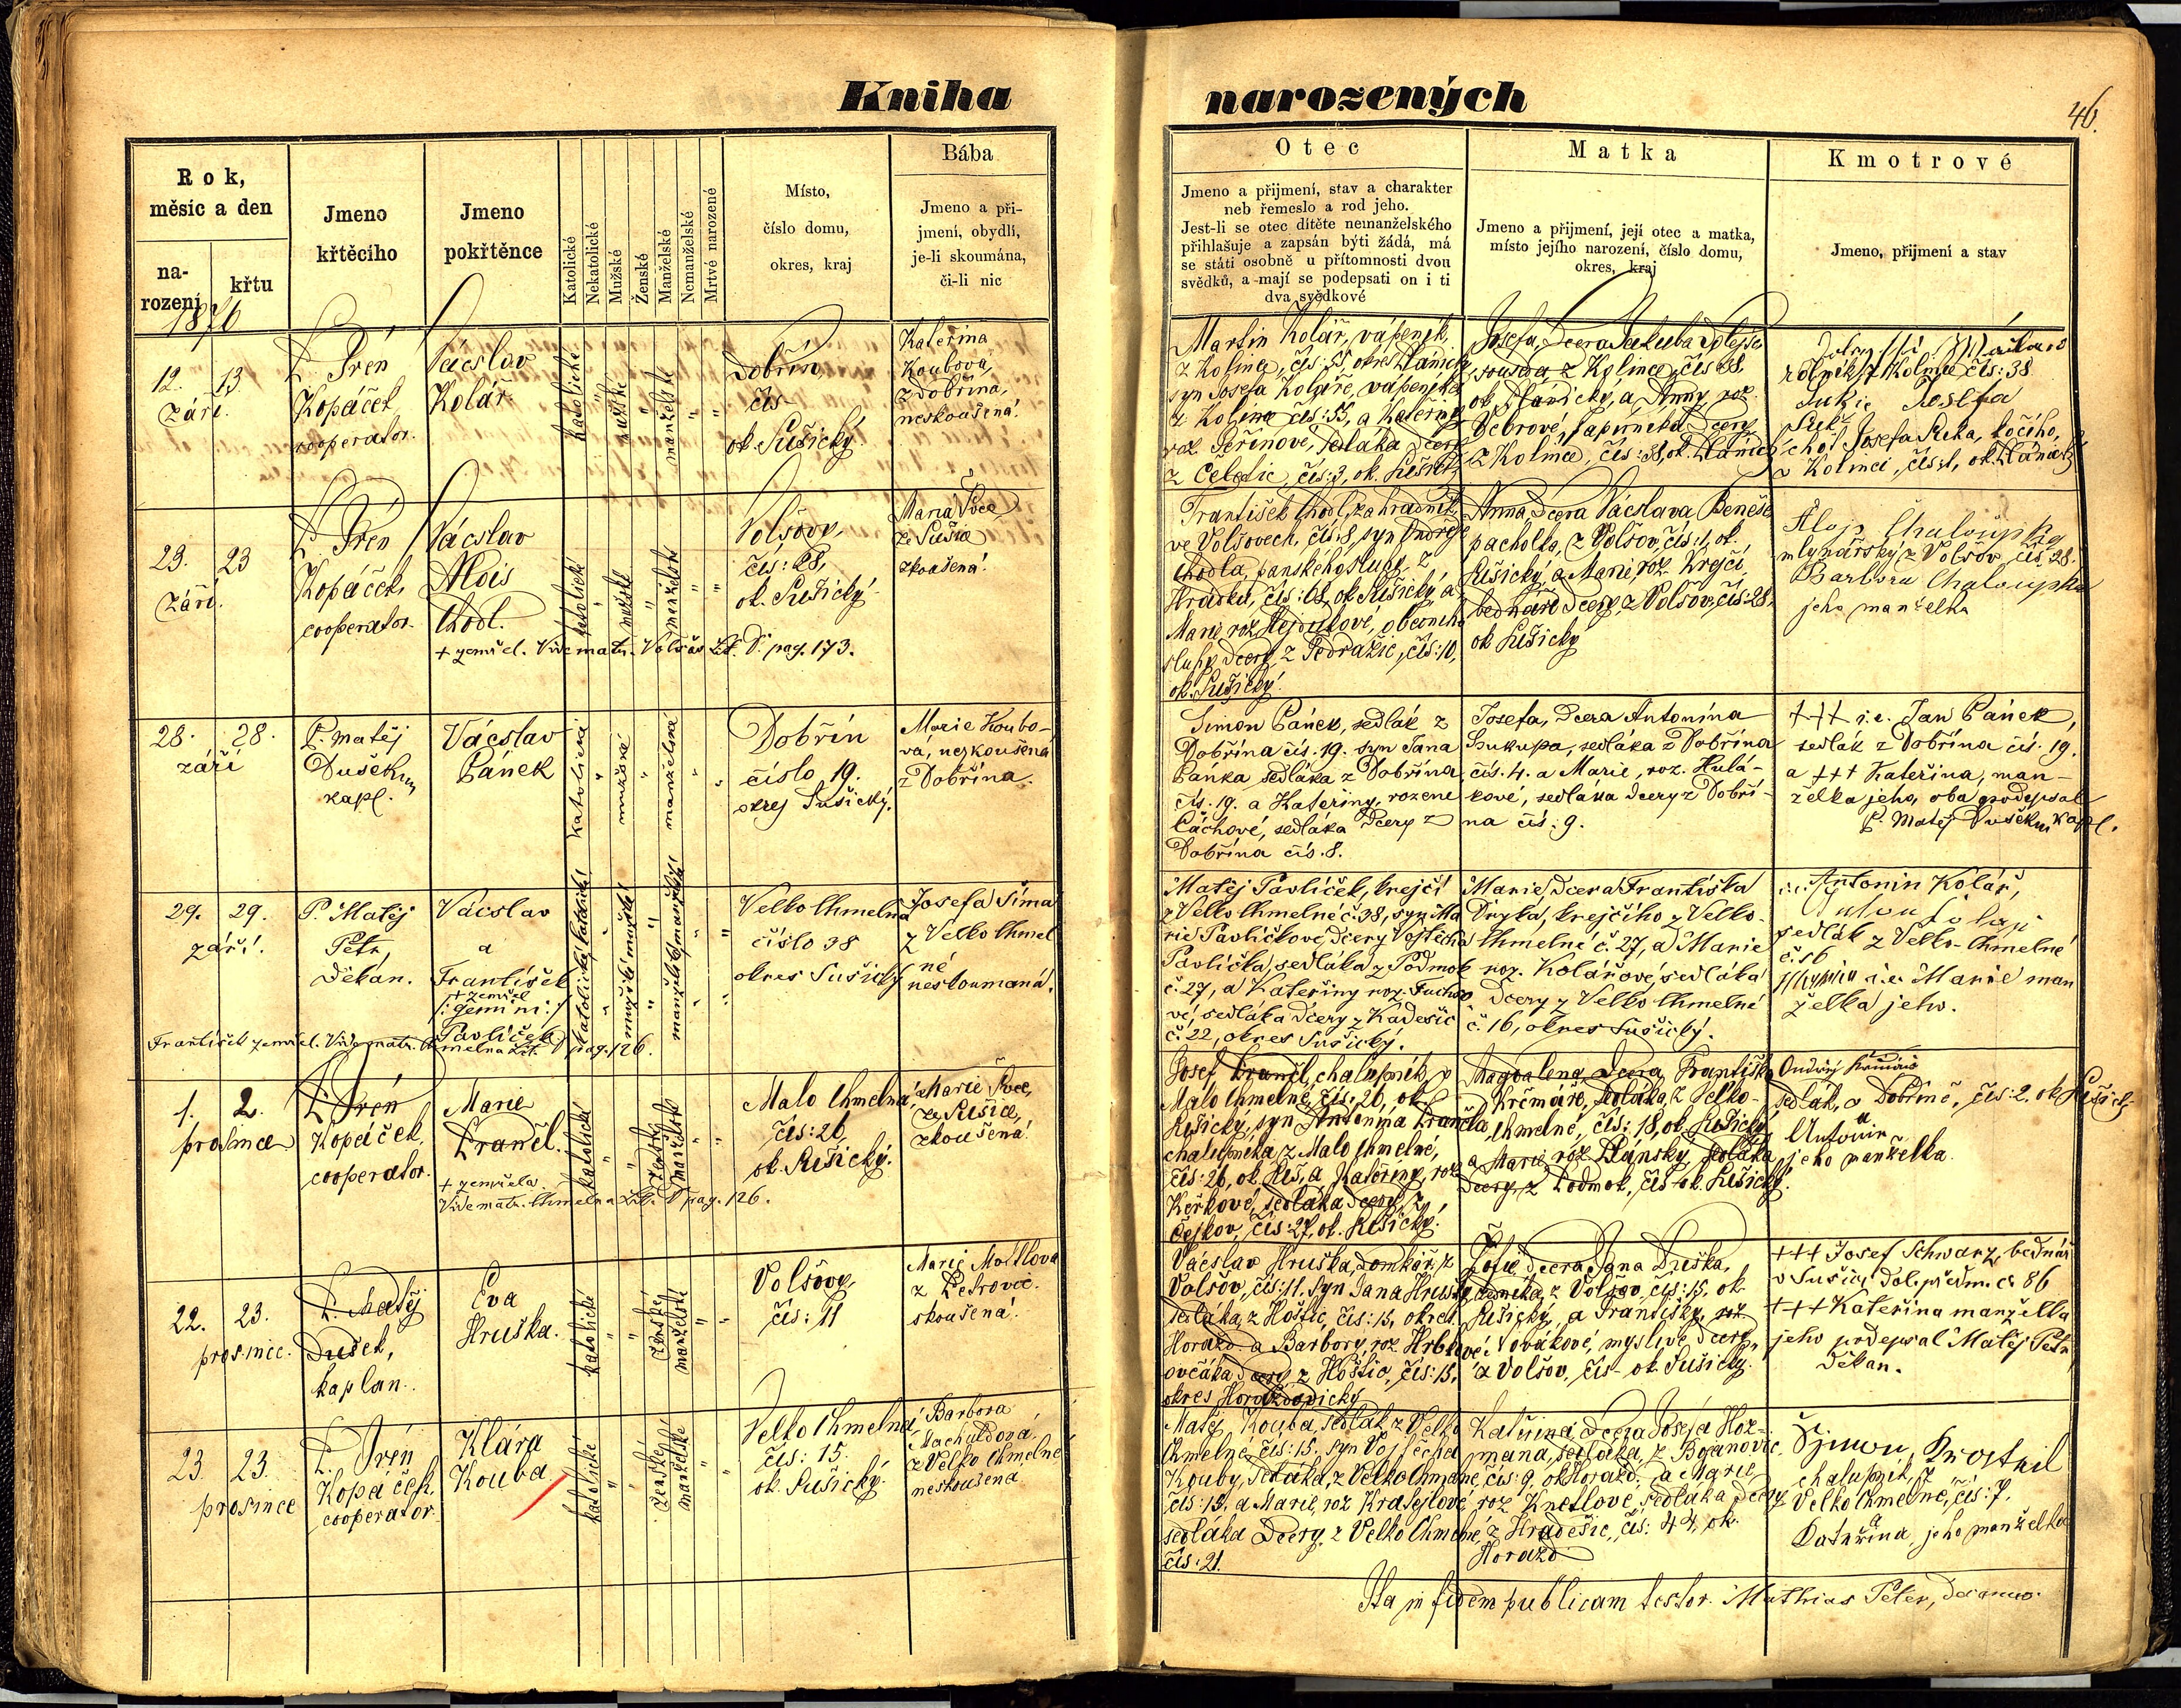 Kniha narozených
46.
Rok,
měsíc a den
na-
rození
křtu
Jmeno
křtěcího
Jmeno
pokřtěnce
Katolické
Nekatolické
Mužské
Ženské
Manželské
Nemanželské
Mrtvé narozené
Místo,
číslo domu,
okres, kraj
Bába
Jmeno a při-
jmení, obydlí,
je-li skoumána,
či-li nic
Otec
Jmeno a přijmení, stav a charakter
neb řemeslo a rod jeho.
Jest-li se otec dítěte nemanželského
přihlašuje a zapsán býti žádá, má
se státi osobně u přítomnosti dvou
svědků, a mají se podepsati on i ti
dva svědkové
Matka
Jmeno a přijmení, její otec a matka,
místo jejího narození, číslo domu,
okres, kraj
Kmotrové
Jmeno, přijmení a stav
1876
12. 13
září.
P. Irén
Kopáček
cooperator.
Václav
Kolář
katolické
mužské
manželské
Dobřín,
čís-
ok. Sušický
Kateřina
Koubova,
z Dobřína,
neskoušená.
Martin Kolář, vápeník,
z Kolince, čís: 55, okres
syn Josefa Koláře, vápeníka
z Kolince čís: 55, a Kateřiny
roz. sedláka dcery
čís: 3, ok. Sušický
Josefa, dcera Jakuba
z Kolince, čís 38,
a Anny roz.
dcery
z Kolince, čís: 38, ok.
rolník z Kolince čís: 38
Josefa
choť Josefa kočího,
v Kolinci, čís: 1, ok.
23. 23
září.
P. Irén
Kopáček,
cooperator.
Václav
Alois
Chodl.
katolické
mužské
manželské
+ zemřel. Vide matr. Volšov Lit. D. pag. 173.
Volšovy,
čís: 28,
ok. Sušický
Maria Švec
ze Sušice
zkoušená.
František Chodl, zahradník
ve Volšovech, čís: 8, syn Ondřeje
Chodla, panského sluhy z
Hrádku, čís: 68, ok. Sušický, a
Marie roz. obecního
sluhy dcery z čís: 10,
ok. Sušický.
Anna, dcera Václava Beneše
pacholka, z Volšov, čís: 1, ok.
Sušický, a Marie, roz. Krejčí,
bednáře dcery, z Volšov, čís: 28,
ok Sušický
Alojs Chaloupka
mlynářský z Volšov čís. 28.
Barbora Chaloupka
jeho manželka
28. 28.
září
P. Matěj
Dušek
kapl.
Václav
Pánek
katolické
mužské
manželské
Dobřín
číslo 19.
okres Sušický.
Marie Koubo-
va, nezkoušená
z Dobřína.
Šimon Pánek, sedlák z
Dobřína čís. 19. syn Jana
Pánka sedláka z Dobřína
čís. 19. a Kateřiny, rozené
Cáchové, sedláka dcery z
Dobřína čís. 8.
Josefa, dcera Antonína
Soukupa, sedláka z Dobřína
čís. 4. a Marie, roz. Hulá-
kové, sedláka dcery z Dobří-
na čís: 9.
+++ i.e. Jan Pánek,
sedlák z Dobřína čís. 19.
a +++ Kateřina, man-
želka jeho, oba podepsal
P. Matěj Dušek kapl.
29. 29.
září.
P. Matěj
Petr,
Děkan.
Václav
a
František
+ zemřel
/: gemini :/
Pavlíček
katolické
mužské
manželské
František zemřel. Vide matr. Chmelna Lit. D pag. 126.
Velko Chmelná
číslo 38
okres Sušický
Josefa Šíma
z Velko Chmel
né
neskoumaná.
Matěj Pavlíček, krejčí
z Velko Chmelné č. 38, syn Ma
rie Pavlíčkové, dcery Vojtěcha
Pavlíčka, sedláka z Podmok
č. 27, a Kateřiny roz. Fuchso
vé, sedláka dcery z Kadešic
č. 22, okres Sušický.
Marie dcera Františka
Dryka, krejčího z Velko-
Chmelné č. 27, a Marie
roz. Kolářové, sedláka
dcery z Velko Chmelné
č. 16, okres Sušický.
Antonín Kolář,
sedlák z Velko-Chmelné
čís 6
i.e. Marie man
želka jeho.
1. 2.
prosince
P. Irén
Kopáček,
cooperator.
Marie
Prančl.
katolické
ženské
manželské
+ zemřela.
Vide matr. Chmelna Lit. D pag. 126.
Malo Chmelná,
čís: 26,
ok. Sušický.
Marie Švec,
ze Sušice,
zkoušená.
Josef Prančl, chalupník, v
Malo Chmelné, čís: 26, ok.
Sušický, syn Antonína Prančla,
chalupníka z Malo Chmelné,
čís: 26, ok. Suš, a Kateřiny, roz
sedláka dcery, z
Čejkov, čís: 27, ok. Sušický.
Magdalena, dcera Františka
Krčmáře, sedláka, z Velko-
Chmelné, čís: 18, ok. Sušický,
a Marie roz. sedláka
dcery, z Podmok, čís- ok. Sušický.
Ondřej
sedlák, v Dobříně, čís: 2, ok. Sušický
a
Antonie
jeho manželka.
22. 23.
prosince.
P. Matěj
Dušek,
kaplan.
Eva
Hruška.
katolické
ženské
manželské
Volšovy,
čís: 11
Marie
z Petrovic.
skoušená.
Václav Hruška, domkář, z
Volšov, čís: 11. syn Jana Hrušky
sedláka, z Hoštic, čís: 15, okres.
Horažd. a Barbory, roz.
ovčáka dcery z Hoštic, čís: 15,
okres Horažďovický
Žofie dcera Jana
z Volšov, čís: 15, ok.
Sušický, a Františky, roz.
Novákové, myslivce dcery,
z Volšov, čís- ok. Sušický.
+++ Josef Schwarz, bednář
v Sušici dol. předm. čs 86
+++ Kateřina manželka
jeho podepsal Matěj Petr
Děkan.
23. 23.
prosince
P. Irén
Kopáček,
cooperator.
Klára
Kouba
katolické
ženské
manželské
Velko Chmelná,
čís: 15.
ok. Sušický.
Barbora
Machuldová
z Velko Chmelné
neskoušena.
Matěj Kouba, sedlák z Velko
Chmelné, čís: 15. syn Vojtěcha
Kouby, sedláka, z Velko Chmelné,
čís: 15. a Marie, roz Kratejlové
sedláka dcery, z Velko Chmelné,
čís: 21.
Kateřina dcera Josefa Hoz-
mana, sedláka, z Bojanovic,
čís: 9, ok. Horažd. a Marie,
roz Knetlové, sedláka dcery
z Hradešic, čís: 44, ok.
Horažd
Šimon Krostnil
chalupník, z
Velko Chmelné, čís: 7.
a
Kateřina, jeho manželka
Ita in fidem publicam testor Mathias Peter, Decanus.